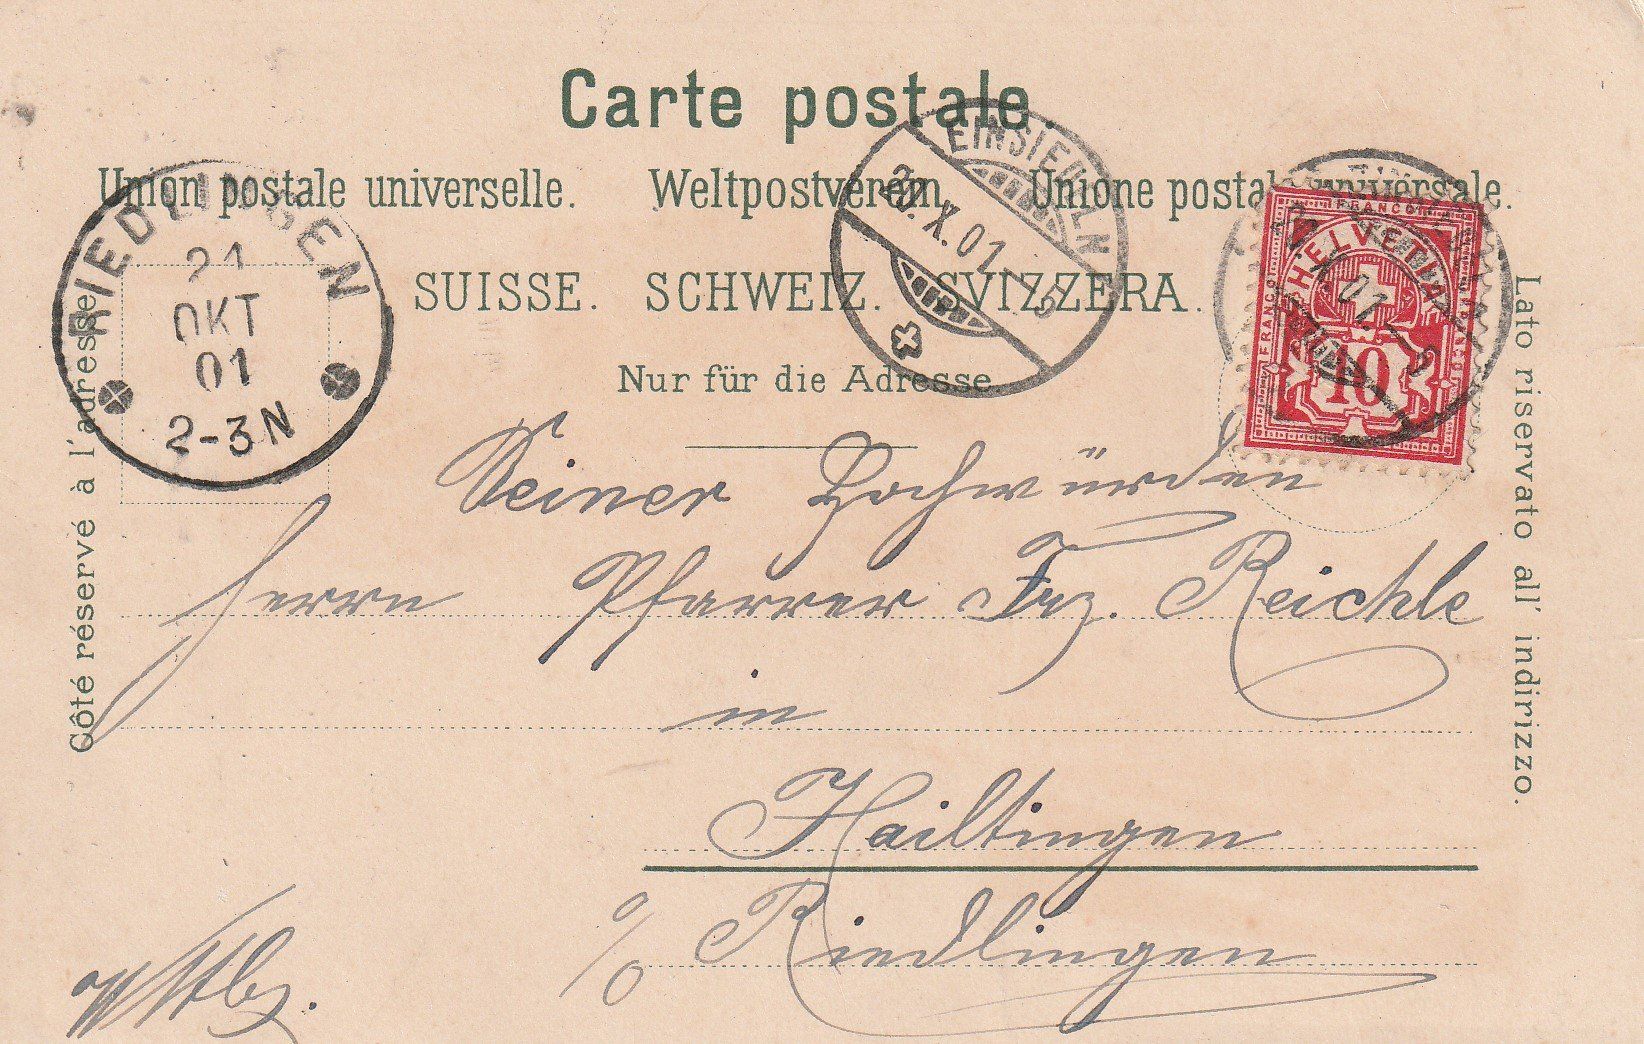 Carte postale.
Union postale universelle. Weltpostverein. Unione postale universale.
SUISSE. SCHWEIZ. SVIZZERA.
Nur für die Adresse
Côté réservé à l'adresse
Lato riservato all' indirizzo.
RIEDLINGEN
21
OKT
01
2-3N
EINSIEDELN
20.X.01.-5
FRANCO
HELVETIA
FRANCO
10
Seiner Hochwürden
Herrn Pfarrer Frz. Reichle
in
Hailtingen
o/o Riedlingen